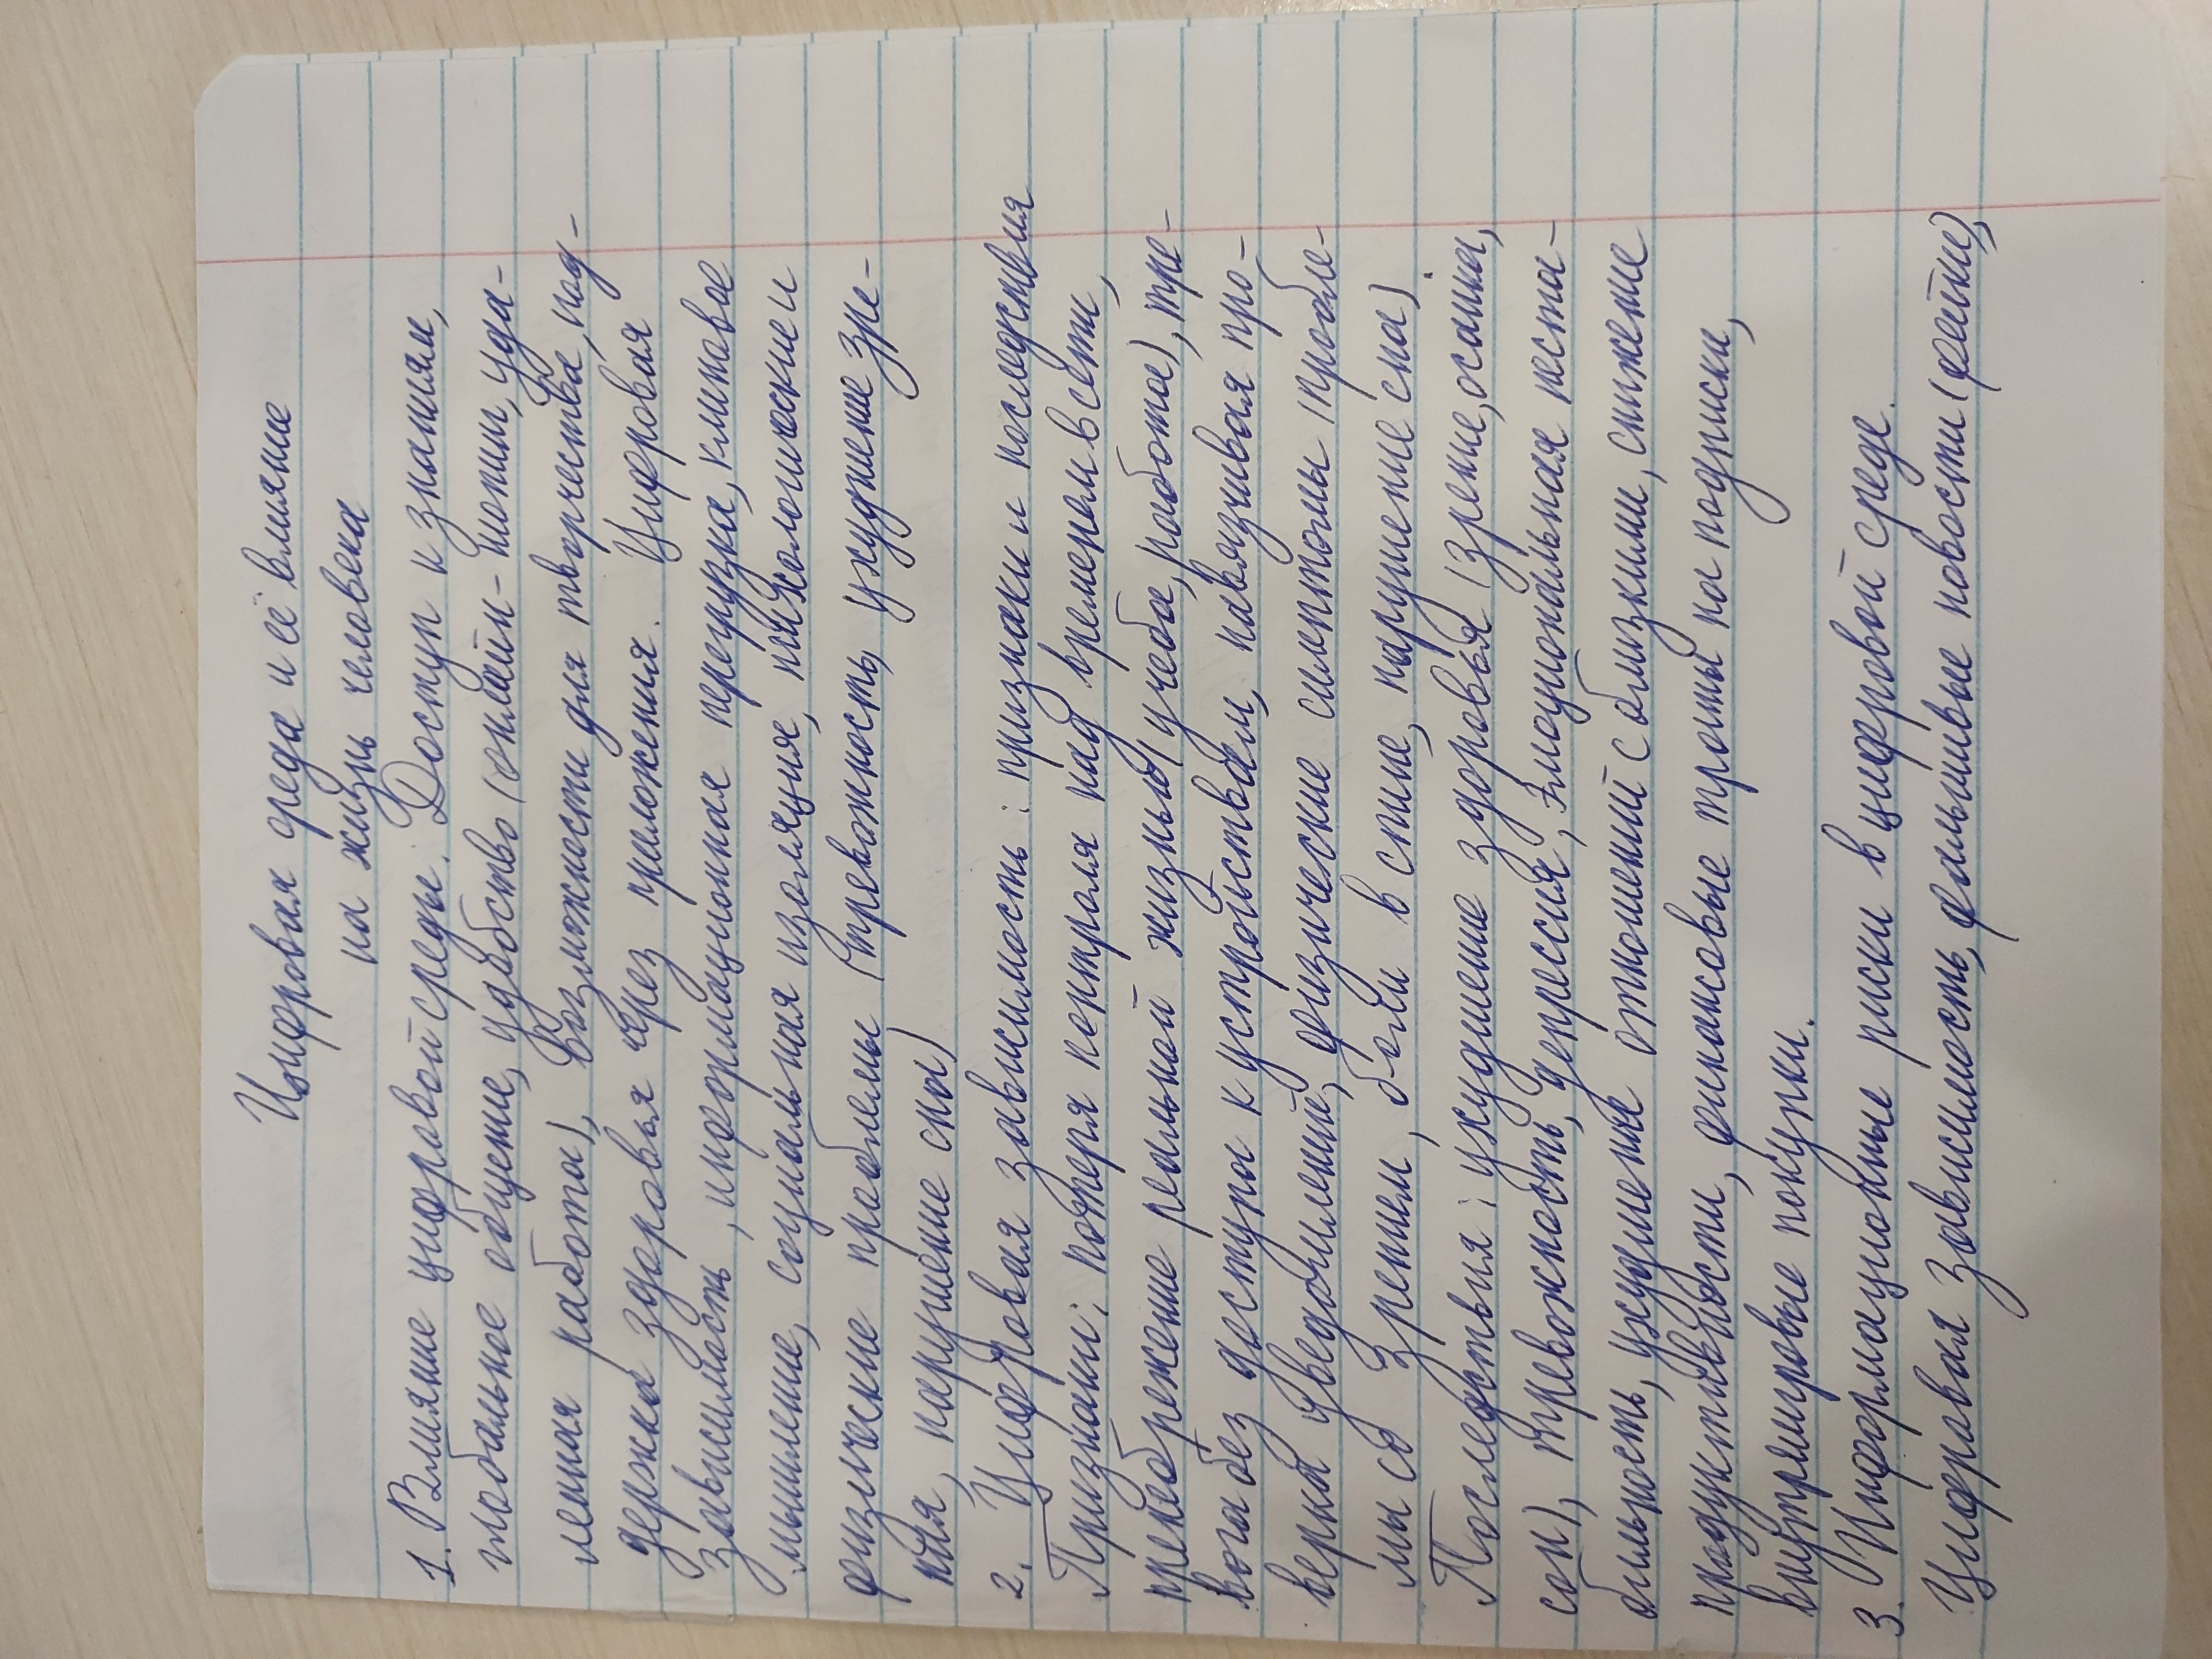 Цифровая среда и её влияние
на жизнь человека
1. Влияние цифровой среды. Доступ к знаниям,
глобальное общение, удобство (онлайн-шопинг, уда-
ленная работа), возможности для творчества, под-
держка здоровья через приложения. Цифровая
зависимость, информационная перегрузка, клиповое
мышление, социальная изоляция, психологические и
физические проблемы (тревожность, ухудшение зре-
ния, нарушение сна)
2. Цифровая зависимость: признаки и последствия
Признаки: потеря контроля над временем в сети,
пренебрежение реальной жизнью (учеба, работа), тре-
вога без доступа к устройствам, навязчивая про-
верка уведомлений, физические симптомы (пробле-
мы со зрением, боли в спине, нарушение сна).
Последствия: ухудшение здоровья (зрение, осанка,
сон), тревожность, депрессия, эмоциональная неста-
бильность, ухудшение отношений с близкими, снижение
продуктивности, финансовые траты на подписки,
внутриигровые покупки.
3. Информационные риски в цифровой среде.
Цифровая зависимость, фальшивые новости (фейки),